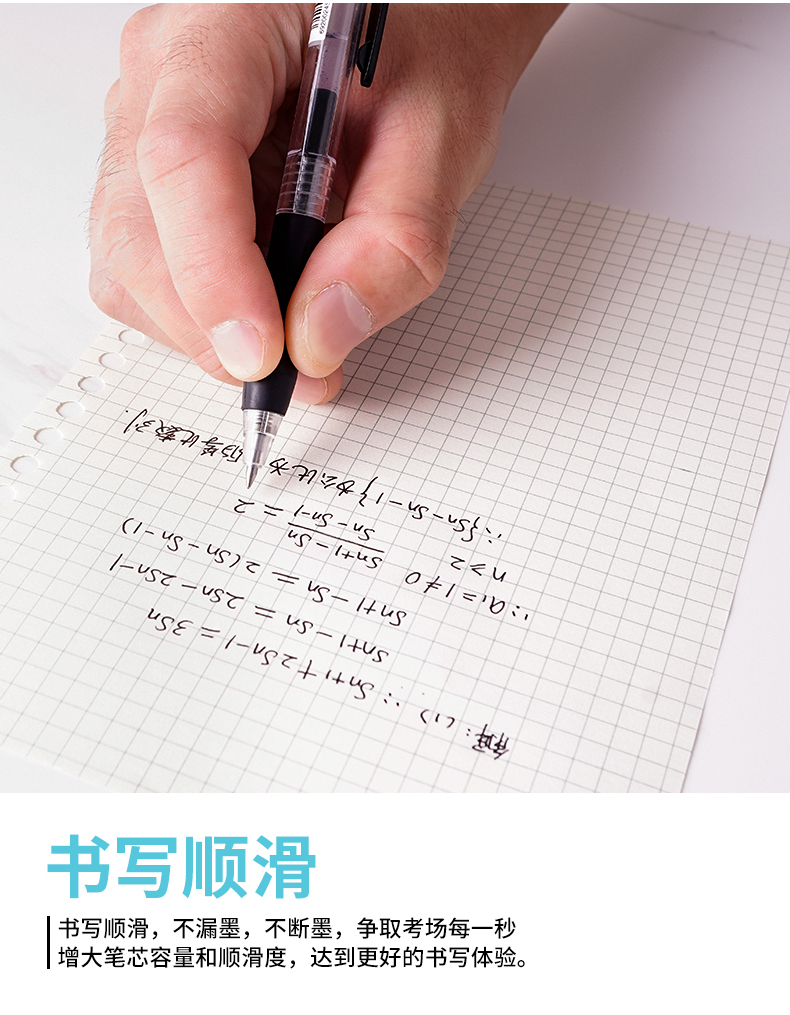 解：(1) ∵ Sn+1 + 2Sn-1 = 3Sn
Sn+1 - Sn = 2Sn - 2Sn-1
Sn+1 - Sn = 2(Sn - Sn-1)
∵ a1 = 1 ≠ 0
n ≥ 2
Sn+1 - Sn
Sn - Sn-1 = 2
∴ {Sn - Sn-1} 为公比为 的等比数列.
书写顺滑
书写顺滑，不漏墨，不断墨，争取考场每一秒
增大笔芯容量和顺滑度，达到更好的书写体验。